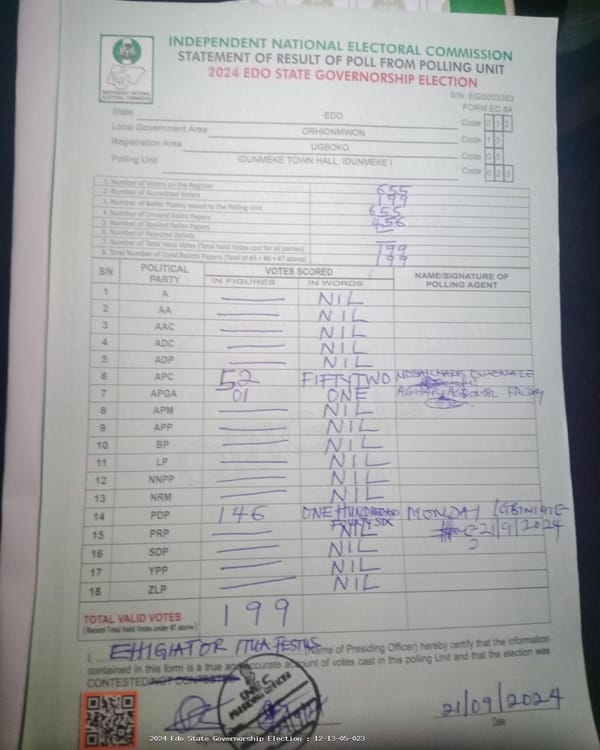 INDEPENDENT NATIONAL ELECTORAL COMMISSION
STATEMENT OF RESULT OF POLL FROM POLLING UNIT
2024 EDO STATE GOVERNORSHIP ELECTION
S/N: EG/0003383
FORM EC 8A
State EDO Code 012
Local Government Area ORHIONMWON Code 13
Registration Area UGBOKO Code 05
Polling Unit IDUNMEKE TOWN HALL, IDUNMEKE I Code 023
1. Number of Voters on the Register 655
2. Number of Accredited Voters 199
3. Number of Ballot Papers Issued to the Polling Unit 655
4. Number of Unused Ballot Papers 456
5. Number of Spoiled Ballot Papers —
6. Number of Rejected Ballots —
7. Number of Total Valid Votes (Total Valid Votes cast for all parties) 199
8. Total Number of Used Ballots Papers (Total of #5 + #6 + #7 above) 199
S/N POLITICAL PARTY VOTES SCORED NAME/SIGNATURE OF POLLING AGENT
IN FIGURES IN WORDS
1 A — NIL
2 AA — NIL
3 AAC — NIL
4 ADC — NIL
5 ADP — NIL
6 APC 52 FIFTYTWO
7 APGA 01 ONE
8 APM — NIL
9 APP — NIL
10 BP — NIL
11 LP — NIL
12 NNPP — NIL
13 NRM — NIL
14 PDP 146 ONE HUNDRED AND FOURTYSIX MONDAY
15 PRP — NIL 21/9/2024
16 SDP — NIL
17 YPP — NIL
18 ZLP — NIL
TOTAL VALID VOTES 199
(Record Total Valid Votes under #7 above)
I, EHIGIATOR ITUA FESTUS (Name of Presiding Officer) hereby certify that the information
contained in this form is a true and accurate account of votes cast in this polling Unit and that the election was
CONTESTED/NOT CONTESTED
INEC
PRESIDING OFFICER
21/09/2024
Date
2024 Edo State Governorship Election : 12-13-05-023